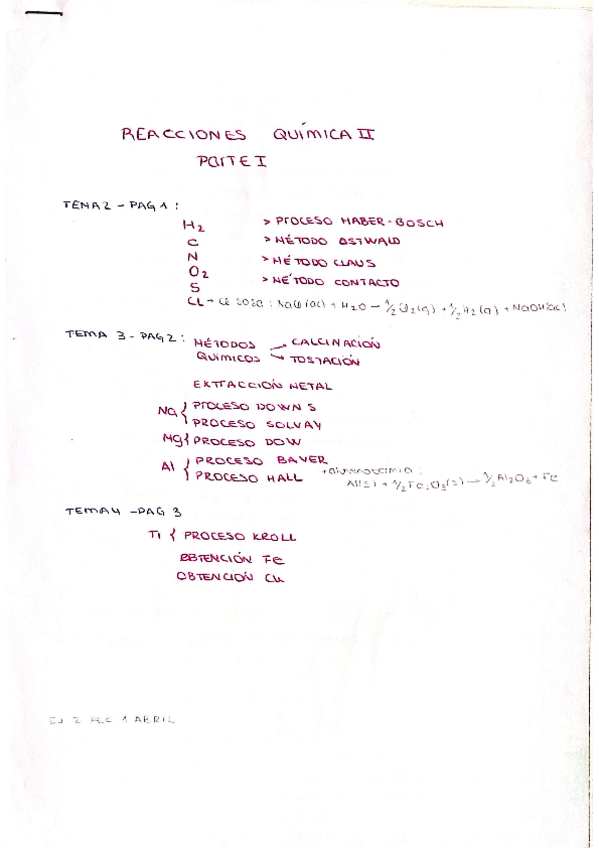 REACCIONES QUÍMICA II
PARTE I
TEMA 2 - PAG 1:
H2 > PROCESO HABER-BOSCH
C > MÉTODO OSTWALD
N > MÉTODO CLAUS
O2 > MÉTODO CONTACTO
S
CL → NaCl(ac) + H2O → 1/2 Cl2(g) + 1/2 H2(g) + NaOH(ac)
TEMA 3 - PAG 2:
MÉTODOS QUÍMICOS → CALCINACIÓN
→ TOSTACIÓN
EXTRACCIÓN METAL
Na { PROCESO DOWNS
PROCESO SOLVAY
Mg { PROCESO DOW
Al { PROCESO BAYER
PROCESO HALL
+ aluminotermia:
Al(s) + 1/2 Fe2O3(s) →
TEMA 4 - PAG 3
Ti { PROCESO KROLL
OBTENCIÓN Fe
OBTENCIÓN Cu
1 ABRIL